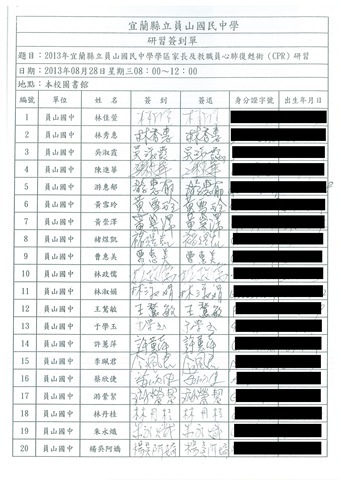 宜蘭縣立員山國民中學
研習簽到單
題目：2013年宜蘭縣立員山國民中學學區家長及教職員心肺復甦術（CPR）研習
日期：2013年08月28日星期三08：00~12：00
地點：本校圖書館
編號 單位 姓名 簽到 簽退 身分證字號 出生年月日
1 員山國中 林佳萱
2 員山國中 林秀惠 林秀惠 林秀惠
3 員山國中 吳淑霞 吳淑霞 吳淑霞
4 員山國中 陳進華
5 員山國中 游惠郁 游惠郁 游惠郁
6 員山國中 黃雪玲 黃雪玲 黃雪玲
7 員山國中 黃崇澤 黃崇澤 黃崇澤
8 員山國中 褚煜凱
9 員山國中 曹惠美 曹惠美 曹惠美
10 員山國中 林政儒
11 員山國中 林淑娟 林淑娟 林淑娟
12 員山國中 王驚敏 王驚敏 王驚敏
13 員山國中 于學玉
14 員山國中 許蕙萍 許蕙萍 許蕙萍
15 員山國中 李珮君
16 員山國中 蔡欣倢
17 員山國中 游縈絜
18 員山國中 林丹桂 林丹桂 林丹桂
19 員山國中 朱永熾
20 員山國中 楊吳阿嬌 楊吳阿嬌 楊吳阿嬌